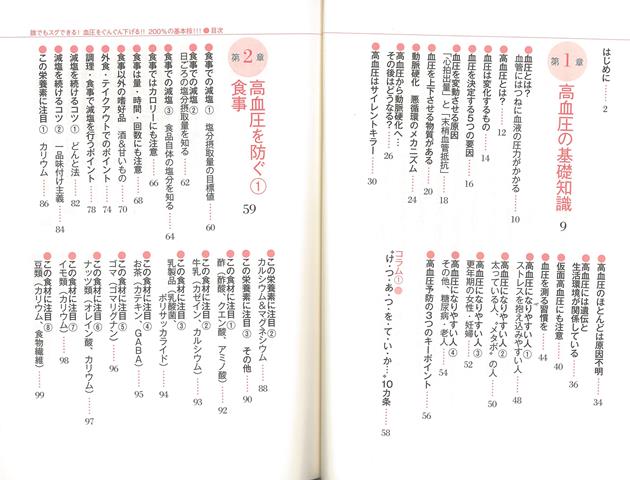 はじめに……2
第1章 高血圧の基礎知識 9
●血圧とは？
血管にはつねに血液の圧力がかかる……10
●高血圧とは？……12
●血圧は変化するもの……14
●血圧を決定する5つの要因……16
●血圧を変動させる原因
「心拍出量」と「末梢血管抵抗」……18
●血圧を上下させる物質がある……20
●動脈硬化 悪循環のメカニズム……24
●高血圧から動脈硬化へ…
その後はどうなる？……26
●高血圧はサイレントキラー……30
●高血圧のほとんどは原因不明……34
●高血圧には遺伝と
生活環境が関係している……36
●仮面高血圧にも注意……40
●血圧を測る習慣を……44
●高血圧になりやすい人①
ストレスを抱え込みやすい人……48
●高血圧になりやすい人②
太っている人、“メタボ”の人……50
●高血圧になりやすい人③
更年期の女性・妊婦……52
●高血圧になりやすい人④
その他、糖尿病・老人……54
●高血圧予防の3つのキーポイント……56
コラム①●
“け・つ・あ・つ・を・て・い・か…”10カ条……58
誰でもスグできる！血圧をぐんぐん下げる!! 200%の基本技!!!●目次
第2章 高血圧を防ぐ① 食事 59
●食事での減塩① 塩分摂取量の目標値……60
●食事での減塩②
日ごろの塩分摂取量を知る……62
●食事での減塩③ 食品自体の塩分を知る……64
●食事ではカロリーにも注意……66
●食事は量・時間・回数にも注意……68
●食事以外の嗜好品 酒&甘いもの……70
●外食・テイクアウトでのポイント……74
●調理・食事で減塩を行うポイント……78
●減塩を続けるコツ① どんと法……82
●減塩を続けるコツ② 一品味付け主義……84
●この栄養素に注目① カリウム……86
●この栄養素に注目②
カルシウム&マグネシウム……88
●この栄養素に注目③ その他……90
●この食材に注目①
酢（酢酸、クエン酸、アミノ酸）……92
●この食材に注目②
牛乳（カゼイン、カルシウム）……93
●この食材に注目③
乳製品（乳酸菌、
ポリサッカライド）……94
●この食材に注目④
お茶（カテキン、GABA）……95
●この食材に注目⑤
ゴマ（ゴマリグナン）……96
●この食材に注目⑥
ナッツ類（オレイン酸、カリウム）……97
●この食材に注目⑦
イモ類（カリウム）……98
●この食材に注目⑧
豆類（カリウム、食物繊維）……99